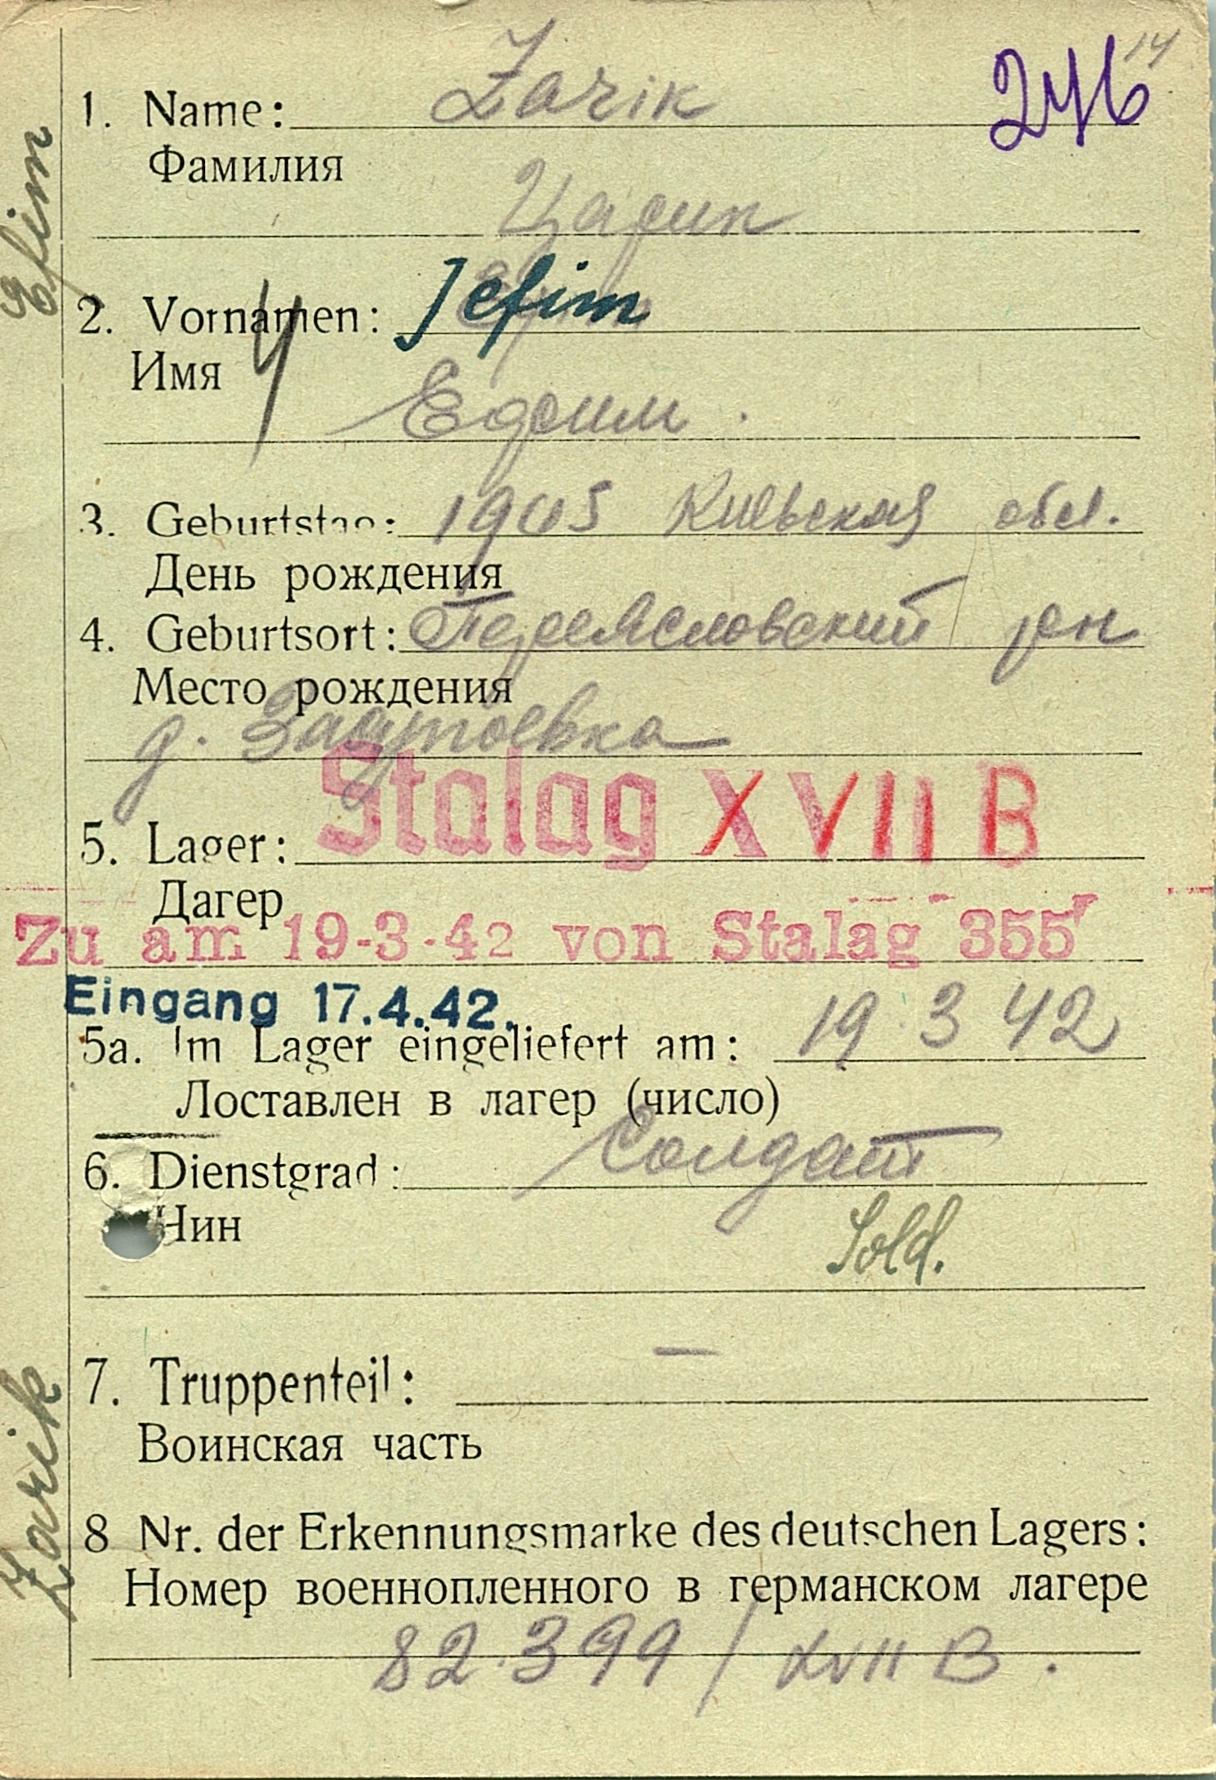 14
246
1. Name: Zarik
Фамилия
Царик
Efim
2. Vornamen: Jefim
Имя
4
Ефим.
3. Geburtstag: 1905 Киевская обл.
День рождения
4. Geburtsort: Переясловский рон
Место рождения
д.
Stalag XVII B
5. Lager:
Дагер
Zu am 19-3-42 von Stalag 355
Eingang 17.4.42.
5a. Im Lager eingeliefert am: 19 3 42
Лоставлен в лагер (число)
6. Dienstgrad: Солдат
Нин
Sold.
7. Truppenteil: —
Воинская часть
Zarik
8 Nr. der Erkennungsmarke des deutschen Lagers:
Номер военнопленного в германском лагере
82.399 / XVII B.